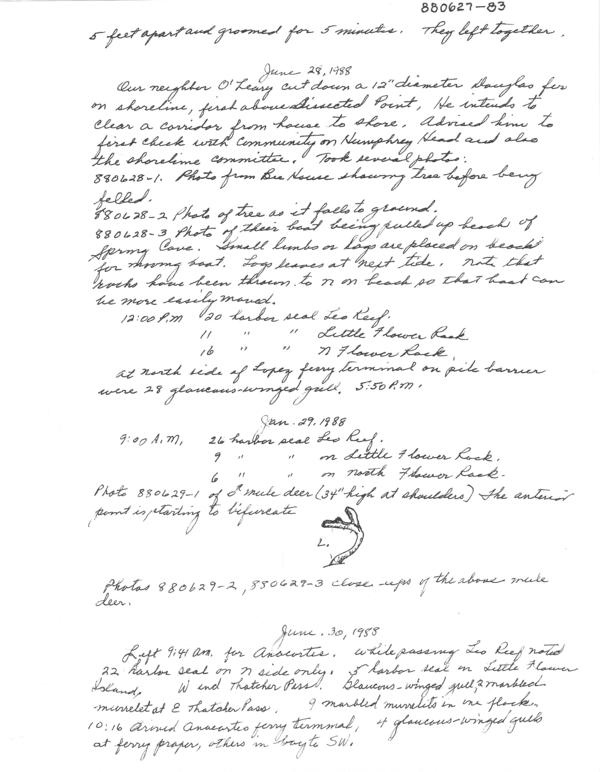 880627-83
5 feet apart and groomed for 5 minutes. They left together.
June 28, 1988
Our neighbor O'Leary cut down a 12" diameter Douglas fir
on shoreline, first above Dissected Point, He intends to
clear a corridor from house to shore. Advised him to
first check with Community on Humphrey Head and also
the shoreline committee. Took several photos:
880628-1. Photo from Bee House showing tree before being
felled.
880628-2 Photo of tree as it falls to ground.
880628-3 Photo of their boat being pulled up beach of
Spring Cove. Small limbs or logs are placed on beach
for moving boat. Logs leaves at next tide. Note that
rocks have been thrown to N on beach so that boat can
be more easily moved.
12:00 P.M 20 harbor seal Leo Reef.
11 " " Little Flower Rock
16 " " N Flower Rock.
At north side of Lopez ferry terminal on pile barrier
were 28 glaucous-winged gull. 5:50 P.M.
Jan. 29, 1988
9:00 A.M. 26 harbor seal Leo Reef.
9 " " on Little Flower Rock.
6 " " on North Flower Rock.
Photo 880629-1 of ♂ mule deer (34" high at shoulders) The anterior
point is starting to bifurcate
L.
Photos 880629-2, 880629-3 close-ups of the above mule
deer.
June. 30, 1988
Left 9:41 am. for Anacortes. While passing Leo Reef noted
22 harbor seal on N side only. 5 harbor seal on Little Flower
Island. W end Thatcher Pass. Glaucous-winged gull, 2 marbled
murrelet at E Thatcher Pass. 9 marbled murrelets in one flock.
10:16 Arrived Anacortes ferry terminal, 4 glaucous-winged gulls
at ferry proper, others in bay to SW.